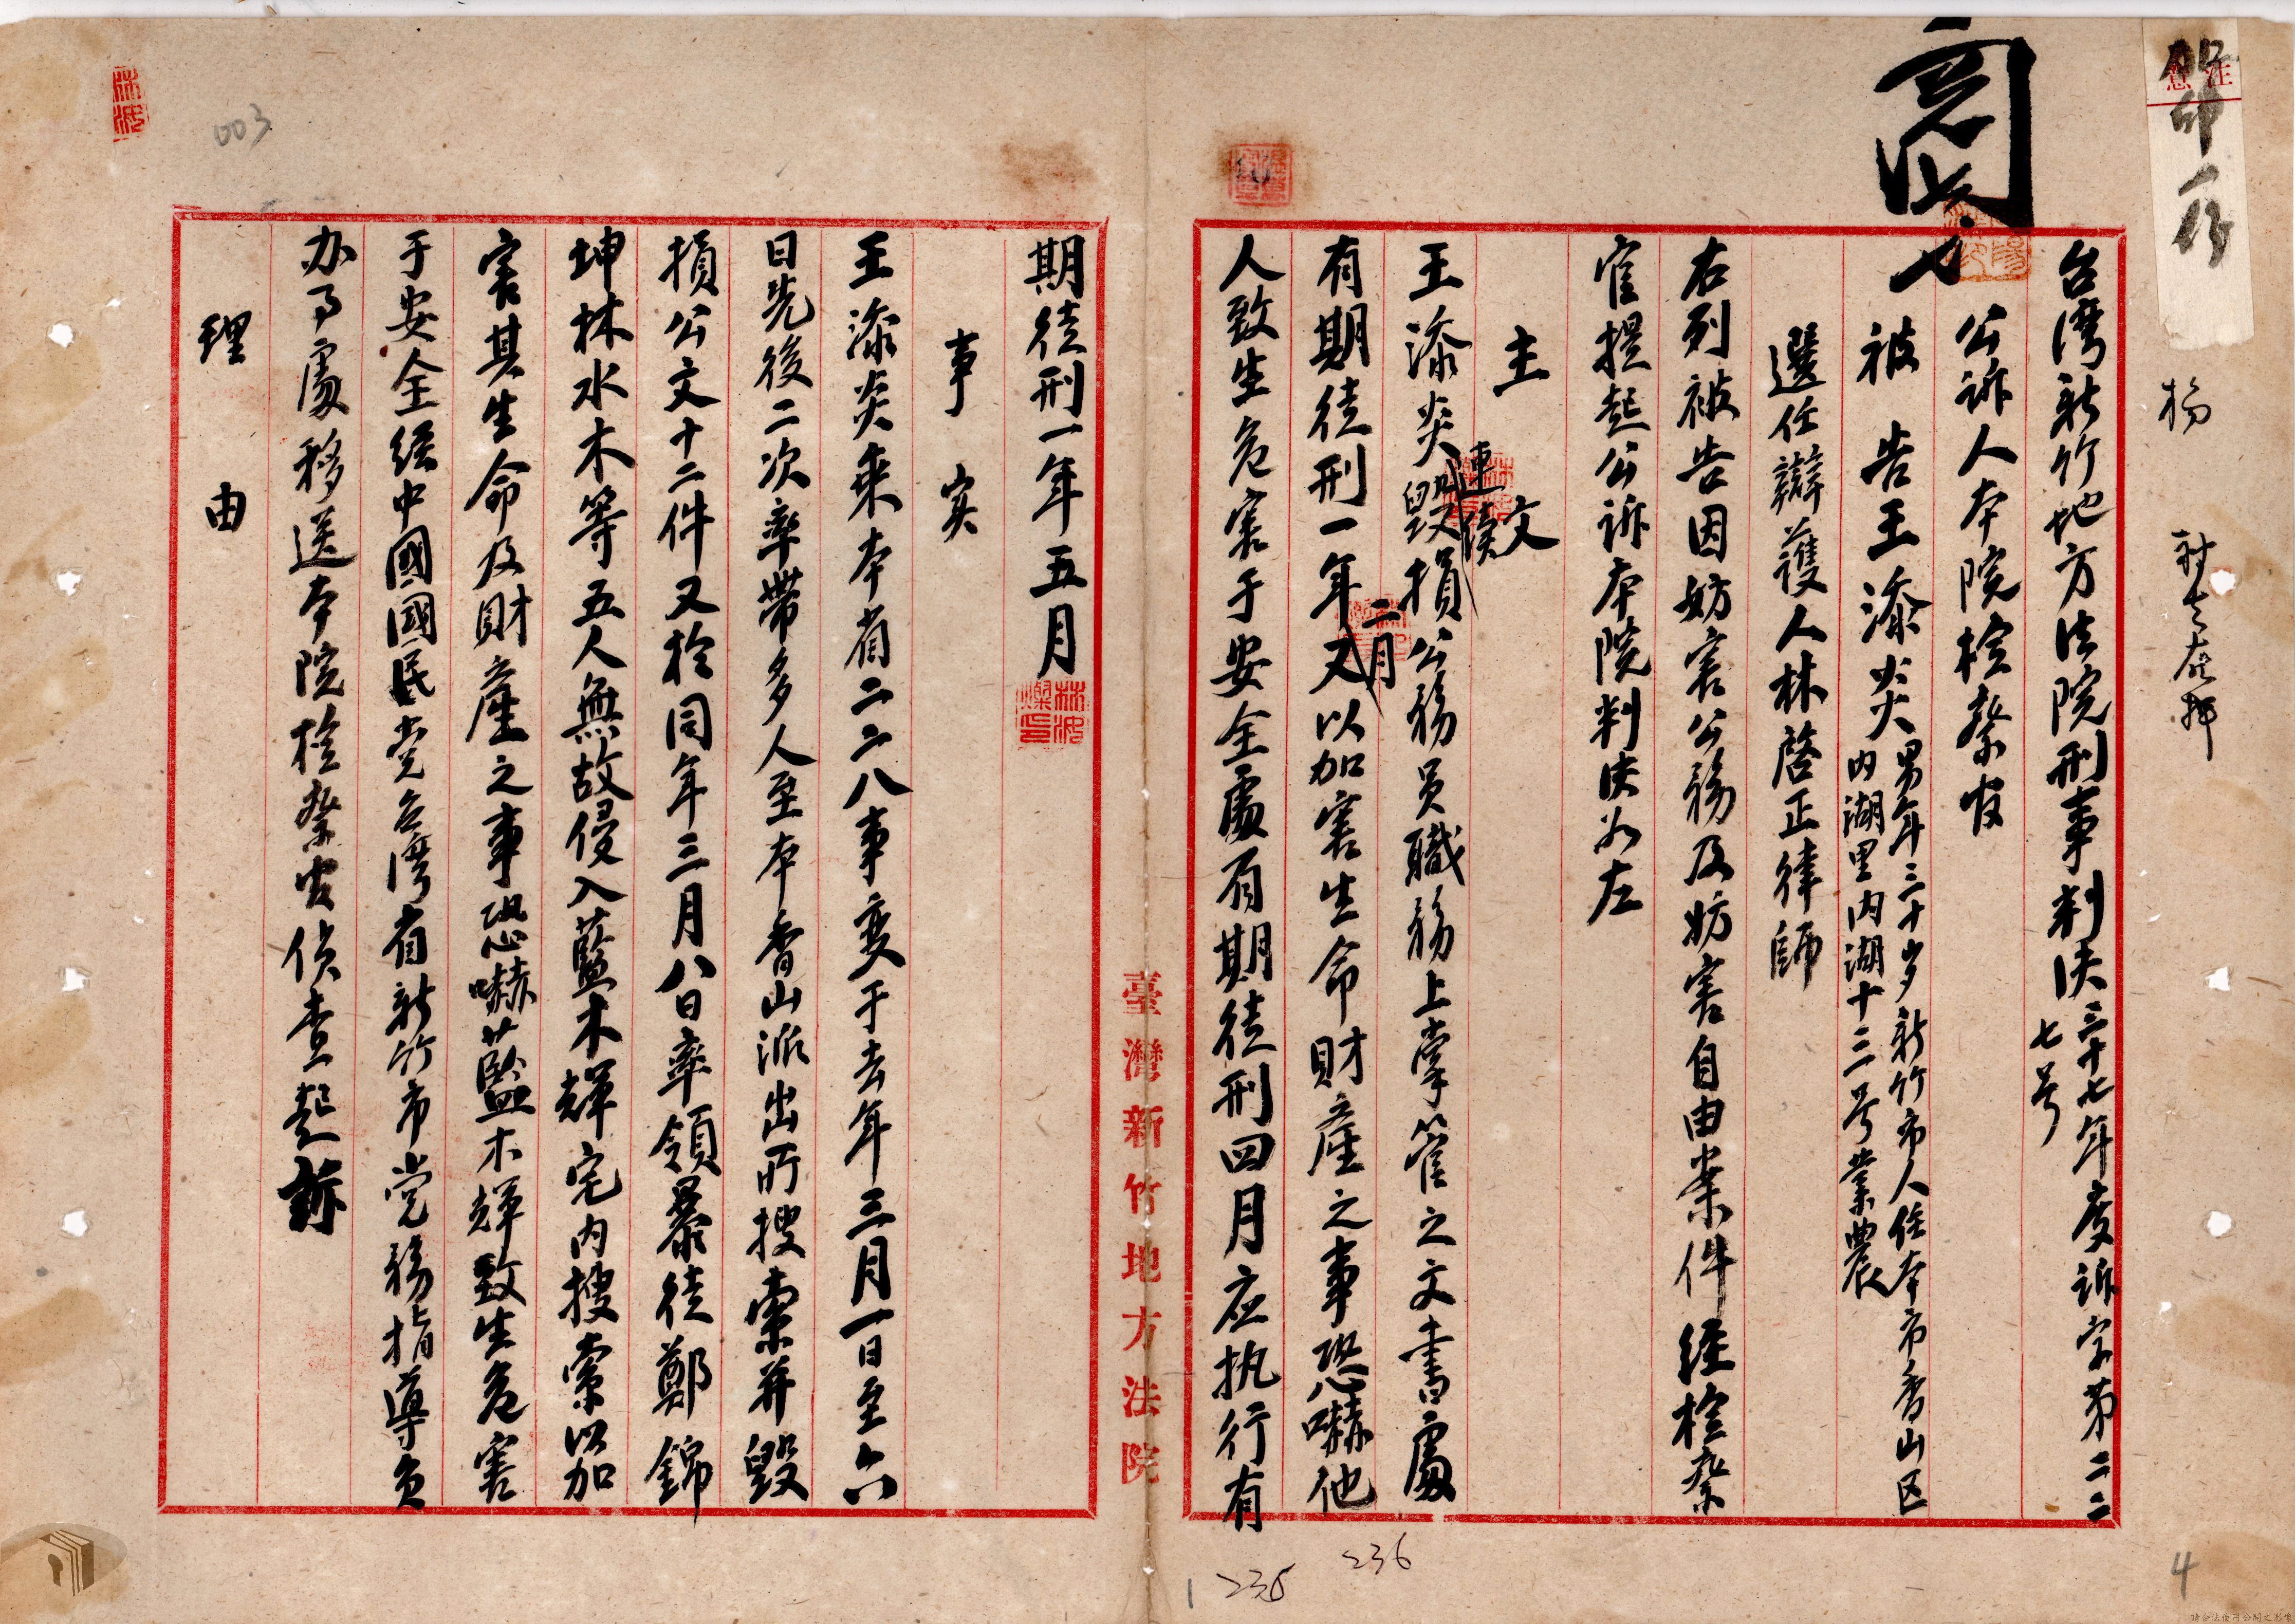 注意
加印一份
杨
台湾新竹地方法院刑事判决三十七年度訴字第二二七号
公訴人本院检察官
被告王添炎男年三十岁新竹市人住本市香山区内湖里内湖十三号業農
選任辯護人林啓正律師
右列被告因妨害公務及妨害自由案件経检察
官提起公訴本院判决如左
主文
王添炎連續毀損公務員職務上掌管之文書處
有期徒刑一年二月又以加害生命財產之事恐嚇他
人致生危害于安全處有期徒刑四月应执行有
臺灣新竹地方法院
期徒刑一年五月
林洲燦印
事实
王添炎乘本省二二八事变于去年三月一日至六
日先後二次率帶多人至本香山派出所搜索并毀
損公文十二件又於同年三月八日率領暴徒鄭錦
坤林水木等五人無故侵入藍木輝宅内搜索以加
害其生命及財產之事恐嚇藍木輝致生危害
于安全経中國國民党台湾省新竹市党務指導員
办事處移送本院检察官侦查起訴
理由
003
235
236
4
請合法使用公開之影像